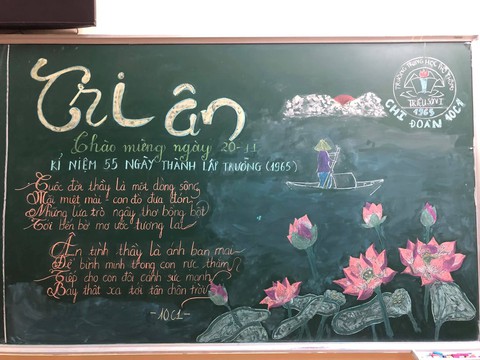 Tri ân
Chào mừng ngày 20-11
KỈ NIỆM 55 NGÀY THÀNH LẬP TRƯỜNG (1965)
Cuộc đời thầy là một dòng sông
Mãi miệt mài con đò đưa đón
Những lứa trò ngây thơ bỏng bột
Tới bến bờ mơ ước tương lai
Ân tình thầy là ánh ban mai
Để bình minh trong con rực thắm
Tiếp cho con đôi cánh sức mạnh
Bay thật xa tới tận chân trời
-10C1-
TRƯỜNG TRUNG HỌC PHỔ THÔNG
1965
CHI ĐOÀN 10C1